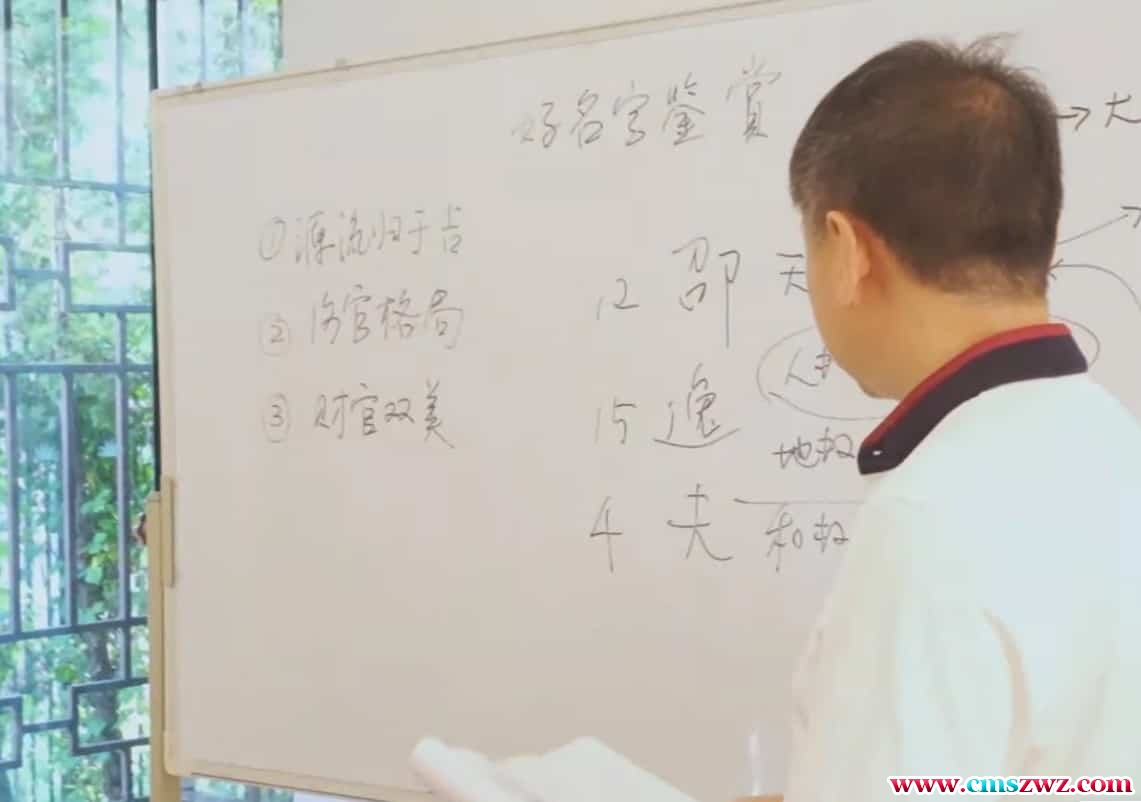 好名字鉴赏
→大
①源流归于吉
②伤官格局
③财官双美
12 邵 天
15 逸 人
地格
4 夫 和格
www.cmszwz.com